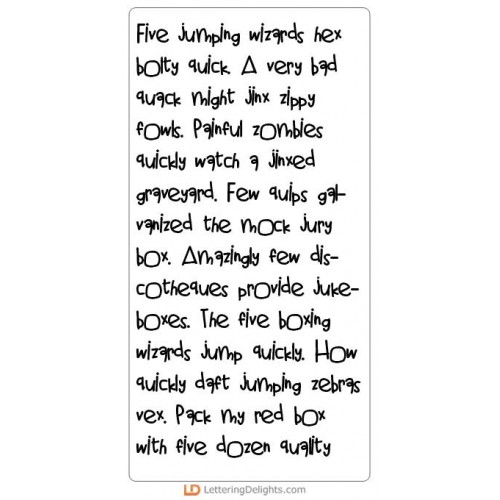 Five jumping wizards hex
bolty quick. A very bad
quack might jinx zippy
fowls. Painful zombies
quickly watch a jinxed
graveyard. Few quips gal-
vanized the mock jury
box. Amazingly few dis-
cotheques provide juke-
boxes. The five boxing
wizards jump quickly. How
quickly daft jumping zebras
vex. Pack my red box
with five dozen quality
LD LetteringDelights.com